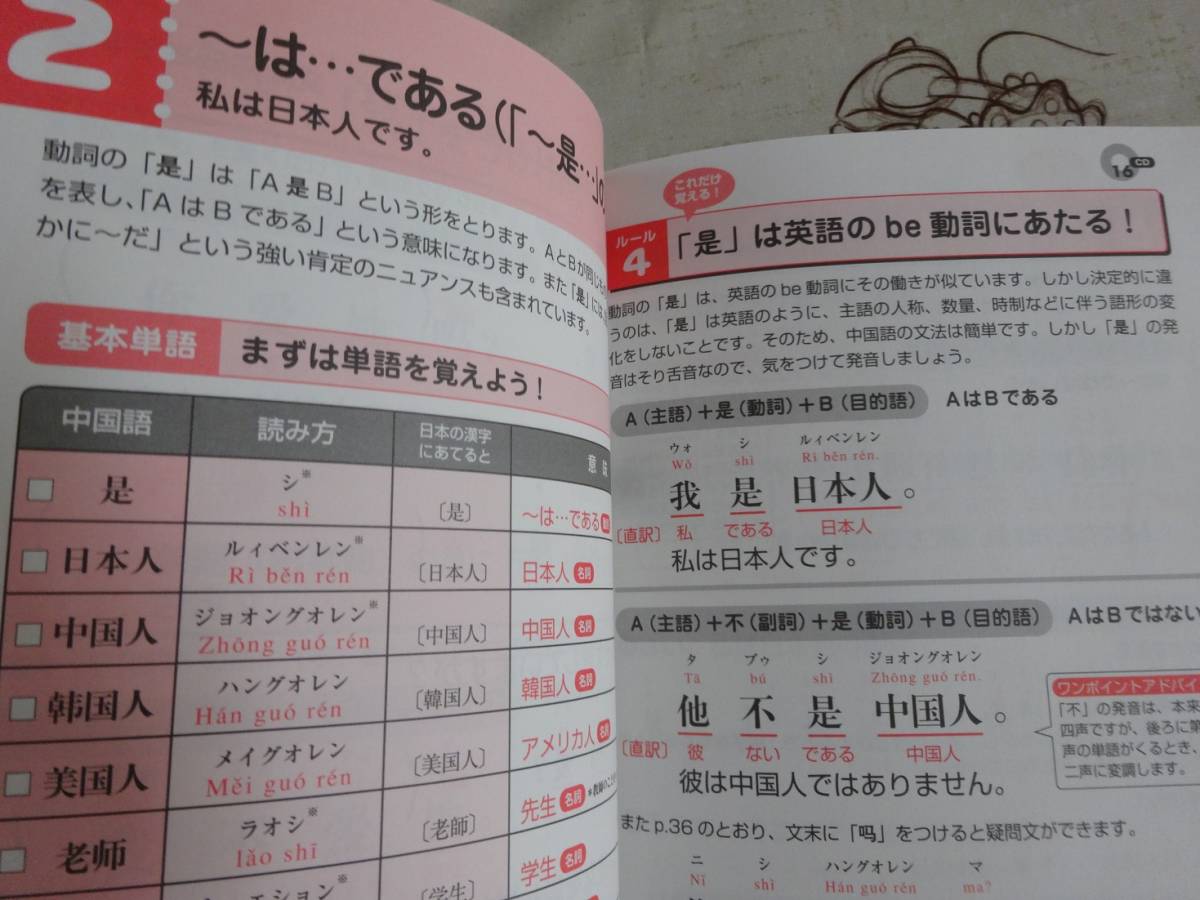 2
～は…である(「～是…」の
私は日本人です。
動詞の「是」は「A 是 B」という形をとります。AとBが同じもの
を表し、「A は B である」という意味になります。また「是」には、
かに～だ」という強い肯定のニュアンスも含まれています。
基本単語 まずは単語を覚えよう！
中国語 読み方 日本の漢字にあてると 意
是 シ※ shì 〔是〕 ～は…である
日本人 ルィベンレン※ Rì běn rén 〔日本人〕 日本人 名詞
中国人 ジョオングオレン※ Zhōng guó rén 〔中国人〕 中国人 名詞
韩国人 ハングオレン Hán guó rén 〔韓国人〕 韓国人 名詞
美国人 メイグオレン Měi guó rén 〔美国人〕 アメリカ人 名詞
老师 ラオシ※ lǎo shī 〔老師〕 先生 名詞
エション※ 〔学生〕 学生 名詞
CD
16
これだけ
覚える！
ルール
4
「是」は英語の be 動詞にあたる！
動詞の「是」は、英語の be 動詞にその働きが似ています。しかし決定的に違
うのは、「是」は英語のように、主語の人称、数量、時制などに伴う語形の変
化をしないことです。そのため、中国語の文法は簡単です。しかし「是」の発
音はそり舌音なので、気をつけて発音しましょう。
A（主語）＋是（動詞）＋B（目的語） AはBである
ウォ シ ルィベンレン
Wǒ shì Rì běn rén.
我 是 日本人 。
〔直訳〕 私 である 日本人
私は日本人です。
A（主語）＋不（副詞）＋是（動詞）＋B（目的語） AはBではない
タ ブゥ シ ジョオングオレン
Tā bú shì Zhōng guó rén.
他 不 是 中国人 。
〔直訳〕 彼 ない である 中国人
彼は中国人ではありません。
ワンポイントアドバイ
「不」の発音は、本来
四声ですが、後ろに第
声の単語がくるとき、
二声に変調します。
また p.36 のとおり、文末に「吗」をつけると疑問文ができます。
ニ シ ハングオレン マ
Nǐ shì Hán guó rén ma?